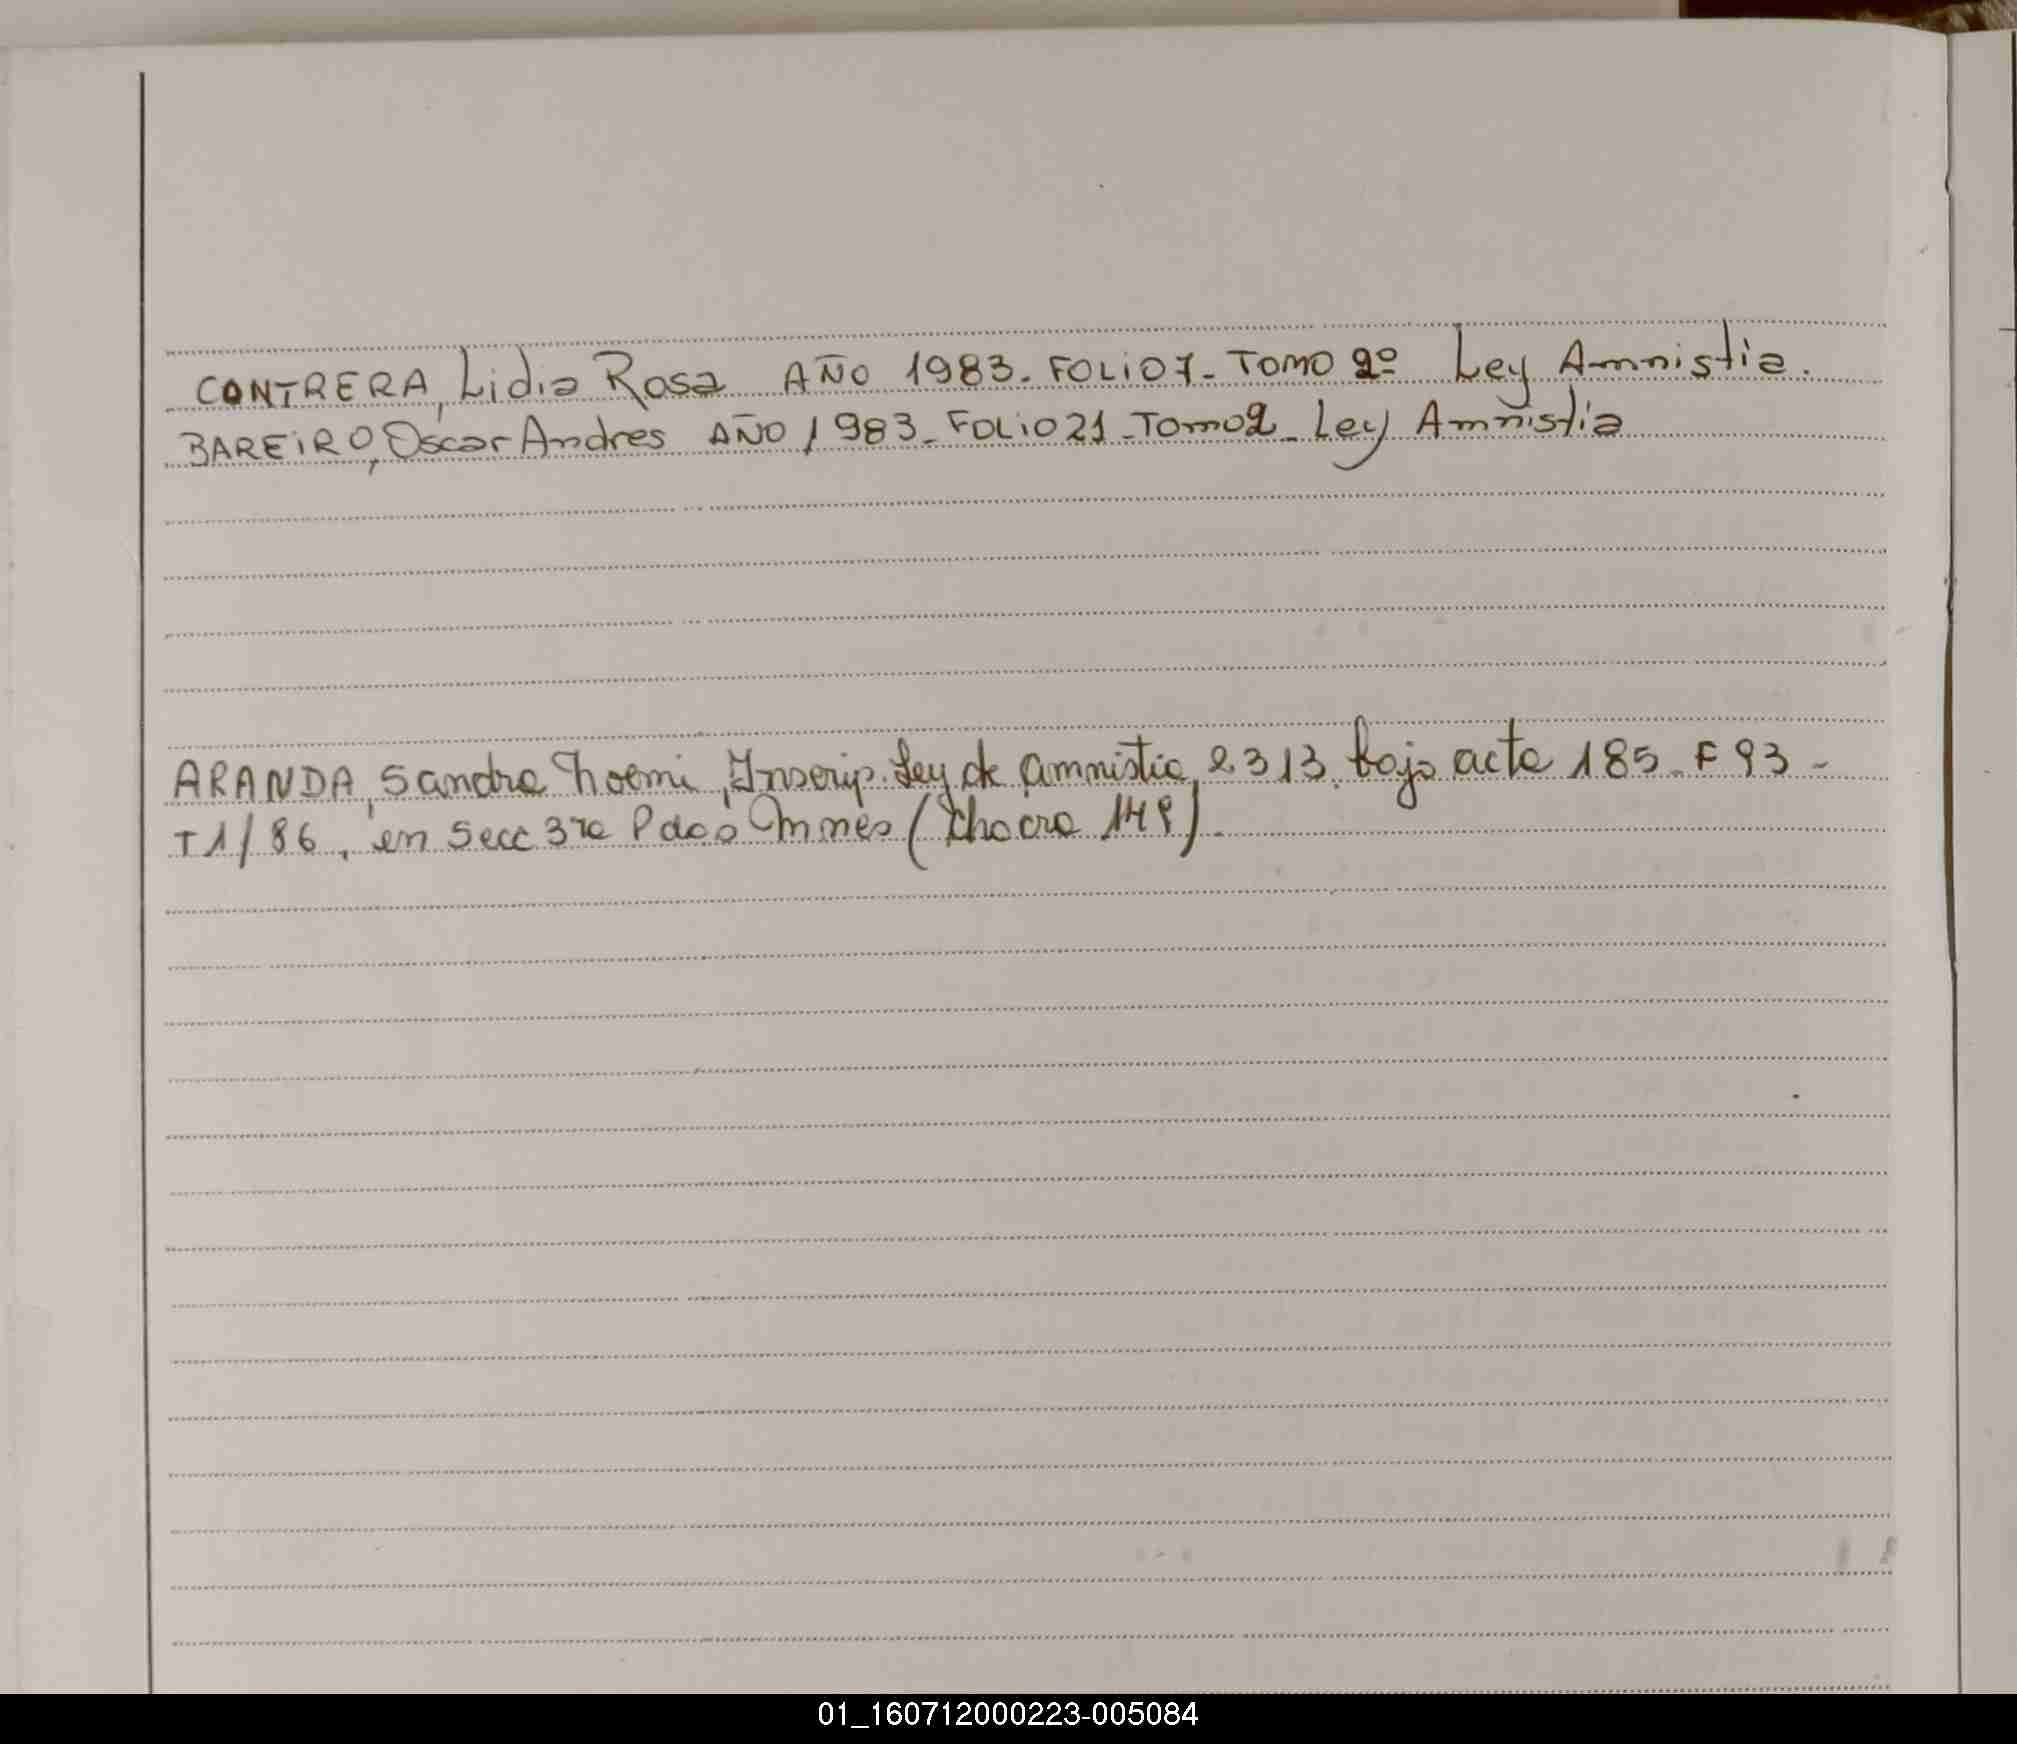 CONTRERA, Lidia Rosa AÑO 1983. FOLIO 7- TOMO 2º Ley Amnistia.
BAREIRO, Oscar Andres AÑO 1983- FOLIO 21-Tomo 2- Ley Amnistia
ARANDA, Sandra Noemi, Inscrip. Ley de amnistia 2313. bajo acta 185- F 93 -
T1/86, en Secc 3ra Pdas Mnes (Chacra 149).
01_160712000223-005084